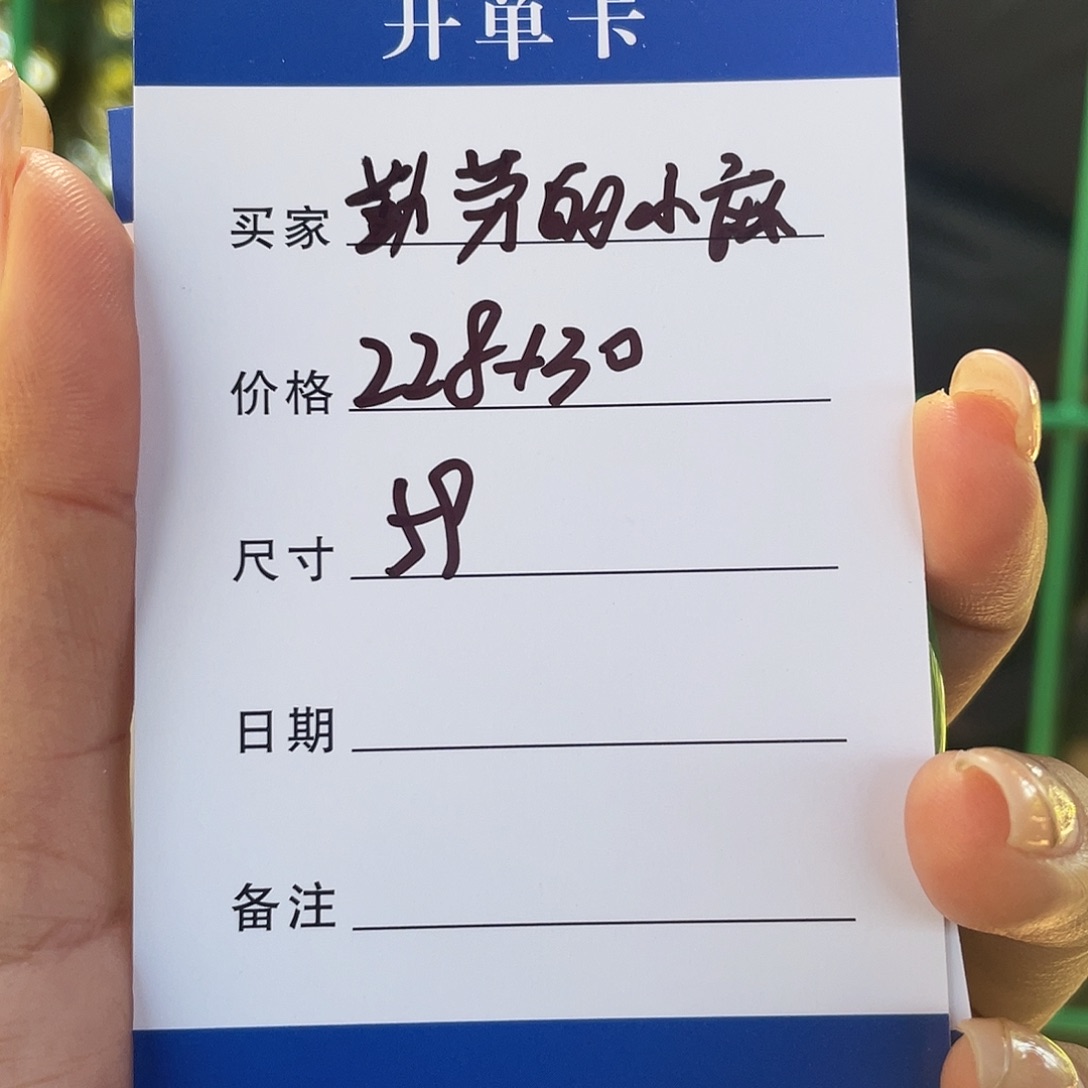 开单卡
买家 勤劳的小麻
价格 228+30
尺寸 59
日期
备注